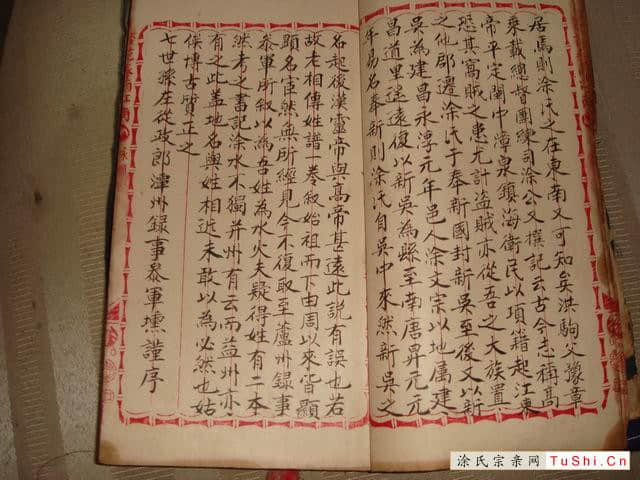 居焉則涂氏之在東南又可知矣洪駒父豫章
乘載總督團練司涂公文撰記云古今志稱髙
帝平定閩中漳泉鎮海衛民以項籍起江東
恐其寓賊之患尤計盗賊亦從吾之大族置
之他郡邊涂氏于奉新國封新吳至後又以新
吳為建昌永淳元年邑人涂文宗以地属建
昌道里遥遠復以新吳為縣至南唐昇元元
年易名奉新則涂氏自吳中來然新吳之
名起後漢靈帝與髙帝甚遠此説有誤也若
故老相傳姓譜一巻叙始祖而下由周以來皆顯
顕名宦然無所經見今不復取至蘆州録事
叅軍所叙以為吾姓為水火夫疑得姓有二本
然考之書記涂水不獨并州有云而益州亦
有之此盖地名與姓相近未敢以為必然也姑
俟博古質正之
七世孫左從政郎漳州録事叅軍壎謹序
涂氏宗亲网 TuShi.Cn